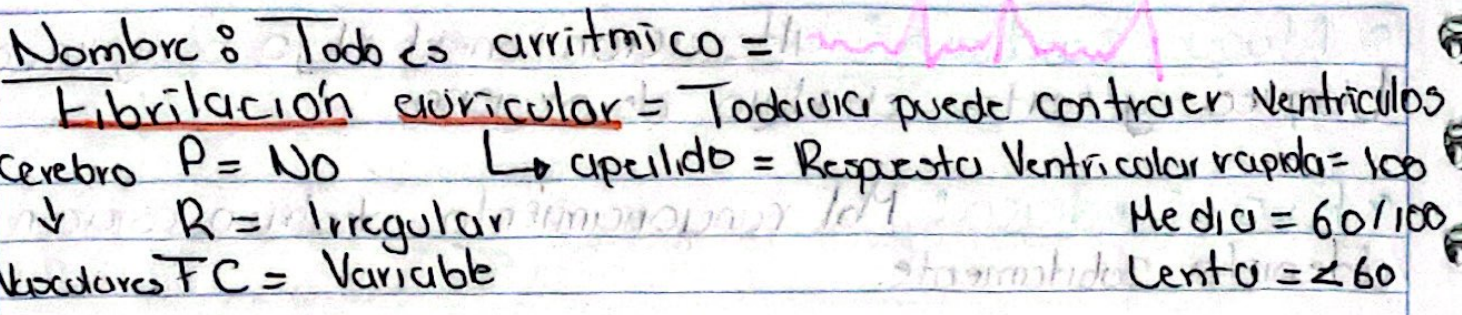 Nombre: Todo es arritmico =
Fibrilación auricular = Todavia puede contraer Ventriculos
Cerebro P = No ↳ apellido = Respuesta Ventricolar rapida = 100
↓ R = Irregular Media = 60/100
Vasculares FC = Variable Lenta = < 60